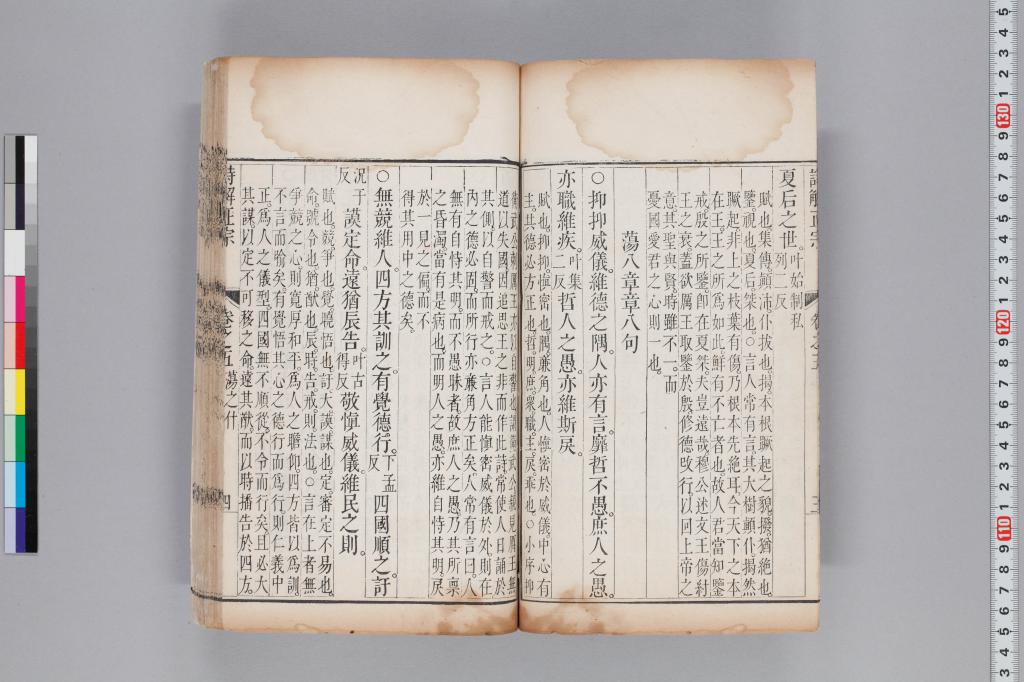 夏后之世。叶始制私列二反
賦也集傳顛沛仆拔也揭本根蹶起之貌撥猶絶也。
鑒視也。夏后桀也。○言人常有言其大樹顛仆揭然
蹶起非上之枝葉有傷乃根本先絶耳今天下之本
在王。王之所爲如此鮮有不亡者也。故人君當知鑒
戒殷之所鑒卽在夏桀夫豈遠哉穆公述文王傷紂
王之衰蓋欲厲王取鑒於殷修德改行以回上帝之
意其聖與賢時雖不一。而
憂國愛君之心則一也。
蕩八章章八句
○抑抑威儀。維德之隅。人亦有言。靡哲不愚。庶人之愚。
亦職維疾。叶集二反哲人之愚。亦維斯戾。
賦也。抑抑愼密也。隅廉角也。人愼密於威儀。中心有
主。其德必方正也。哲明。庶衆。職主。戾乖也。○小序抑
道以失國因追思王之非而作此詩常使人日誦於
其側以自警而戒之。○言人能愼密威儀於外則在
內之德必固。而所行亦廉角方正矣。人常有言曰。人
無有自恃其明。而不愚昧者故庶人之愚乃其所稟
之昏濁當有是病也。而明人之愚。亦維自恃其明戾
於一見之偏而不
得其用中之德矣。
○無競維人。四方其訓之。有覺德行。下孟反四國順之。訏
況于反謨定命。遠猶辰告。叶古得反敬愼威儀。維民之則。
賦也。競爭也覺曉悟也。訏大謨謀也。定審定不易也。
命號令也猶猷也辰時。告戒則法也。○言在上者無
爭競之心則寬厚和平。爲人之瞻仰。四方皆以爲訓。
不言而喻矣。有覺悟其心之德行而爲行。則仁義中
正。爲人之儀型。四國無不順從。不令而行矣。且必大
其謀以定不可移之命。遠其猷。而以時播告於四方。
詩解正宗 卷之五 蕩之什 四